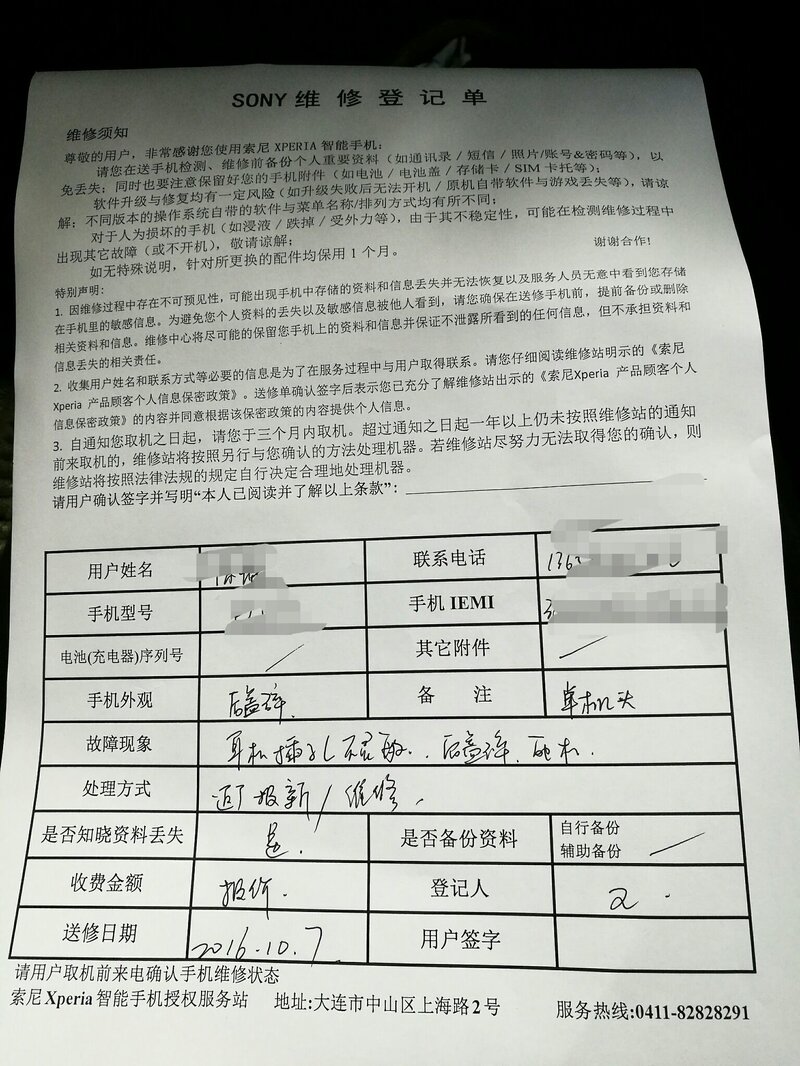 SONY 维修登记单
维修须知
尊敬的用户，非常感谢您使用索尼 XPERIA 智能手机：
请您在送手机检测、维修前备份个人重要资料（如通讯录 / 短信 / 照片/账号&密码等），以
免丢失；同时也要注意保留好您的手机附件（如电池 / 电池盖 / 存储卡 / SIM 卡托等）；
软件升级与修复均有一定风险（如升级失败后无法开机 / 原机自带软件与游戏丢失等），请谅
解；不同版本的操作系统自带的软件与菜单名称/排列方式均有所不同；
对于人为损坏的手机（如浸液 / 跌掉 / 受外力等），由于其不稳定性，可能在检测维修过程中
出现其它故障（或不开机），敬请谅解；
如无特殊说明，针对所更换的配件均保用 1 个月。 谢谢合作！
特别声明：
1. 因维修过程中存在不可预见性，可能出现手机中存储的资料和信息丢失并无法恢复以及服务人员无意中看到您存储
在手机里的敏感信息。为避免您个人资料的丢失以及敏感信息被他人看到，请您确保在送修手机前，提前备份或删除
相关资料和信息。维修中心将尽可能的保留您手机上的资料和信息并保证不泄露所看到的任何信息，但不承担资料和
信息丢失的相关责任。
2. 收集用户姓名和联系方式等必要的信息是为了在服务过程中与用户取得联系。请您仔细阅读维修站明示的《索尼
Xperia 产品顾客个人信息保密政策》。送修单确认签字后表示您已充分了解维修站出示的《索尼Xperia 产品顾客个人
信息保密政策》的内容并同意根据该保密政策的内容提供个人信息。
3. 自通知您取机之日起，请您于三个月内取机。超过通知之日起一年以上仍未按照维修站的通知
前来取机的，维修站将按照另行与您确认的方法处理机器。若维修站尽努力无法取得您的确认，则
维修站将按照法律法规的规定自行决定合理地处理机器。
请用户确认签字并写明“本人已阅读并了解以上条款”：
用户姓名 联系电话 136
手机型号 手机 IEMI
电池(充电器)序列号 / 其它附件 /
手机外观 后盖碎. 备 注 单机头
故障现象 耳机插孔不灵敏. 后盖碎.
处理方式 返厂报新/维修.
是否知晓资料丢失 是. 是否备份资料 自行备份
辅助备份 /
收费金额 报价. 登记人
送修日期 2016.10.7 用户签字
请用户取机前来电确认手机维修状态
索尼Xperia智能手机授权服务站 地址:大连市中山区上海路2号 服务热线:0411-82828291